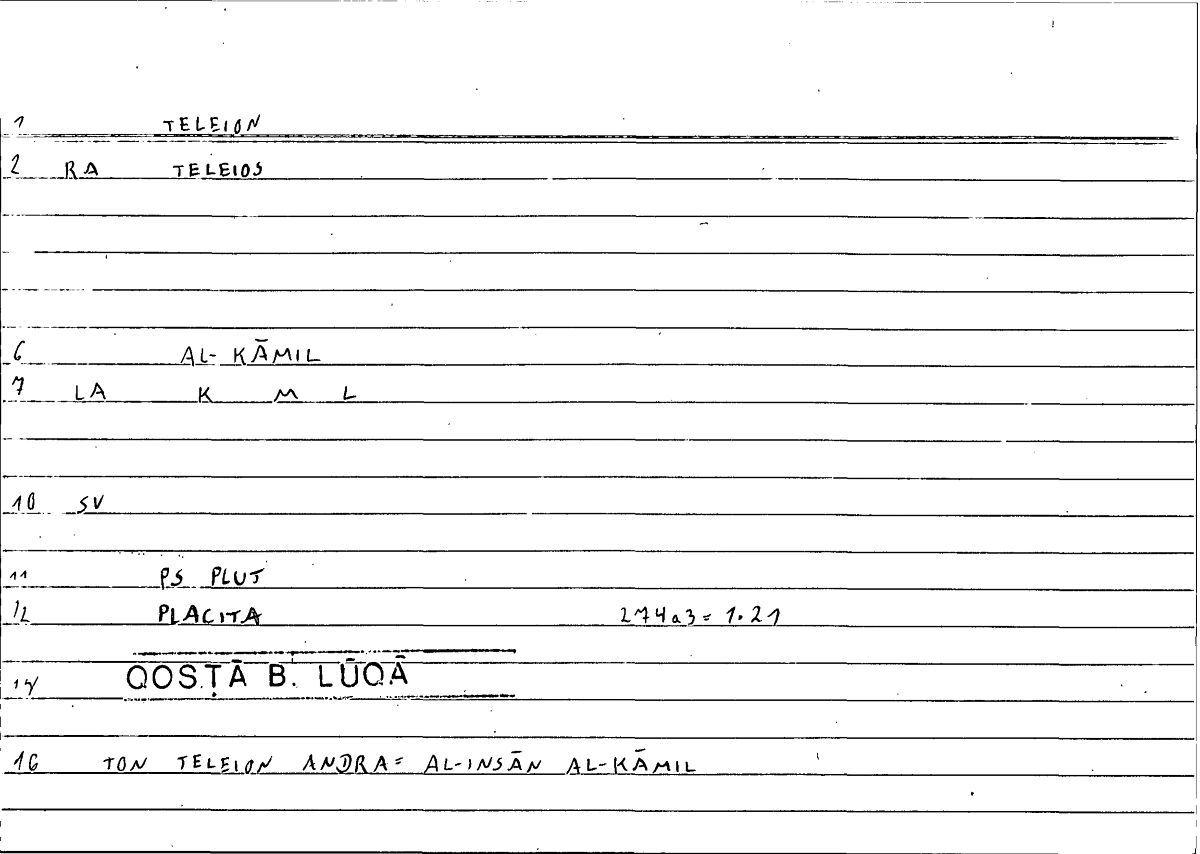 1 TELEION
2 RA TELEIOS
6 AL-KĀMIL
7 LA K M L
10 SV
11 PS PLUT
12 PLACITA 274a3=1.21
14 QOSṬĀ B. LŪQĀ
16 TON TELEION ANDRA= AL-INSĀN AL-KĀMIL